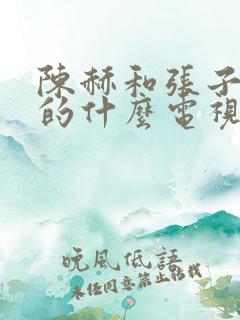 陳赫和張子
的什麼電視
晚風低語
未經同意禁止轉載